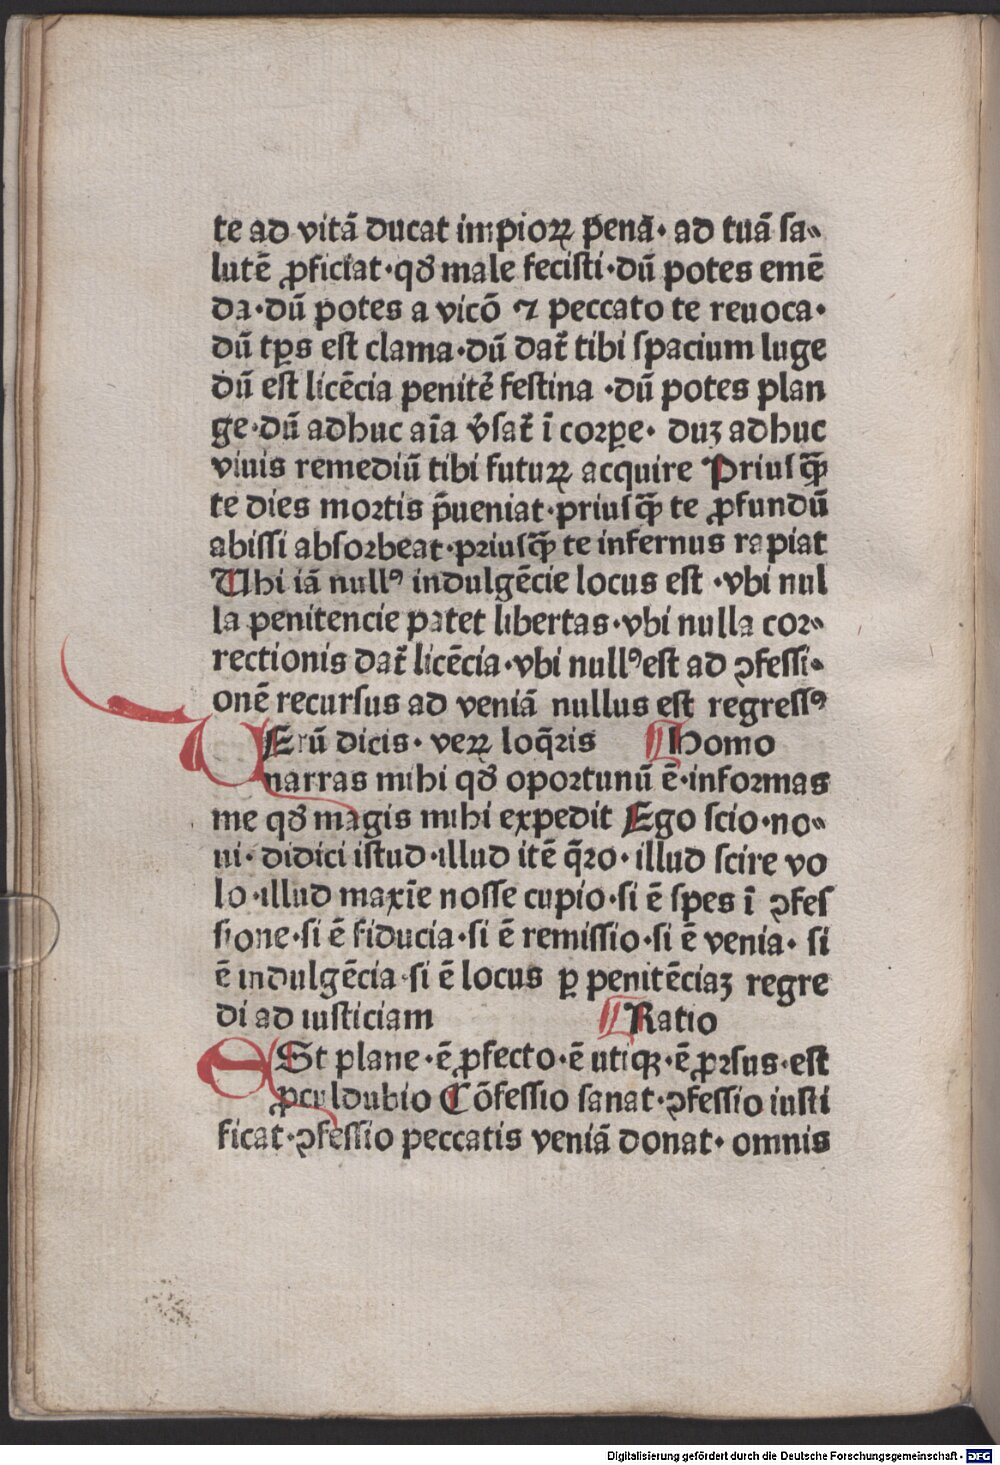 te ad vitã ducat impioꝝ pena̅· ad tuã ſa⸗
lutẽ ꝓficiat·qđ male feciſti·dũ potes emẽ
da·dũ potes a vicõ ⁊ peccato te reuoca·
dũ tp̄s eſt clama·dũ dat᷑ tibi ſpacium luge
dũ eſt licẽcia penitẽ feſtina ·dũ potes plan
ge·dũ adhuc aĩa v̓ſat᷑ ĩ corꝑe· duʒ adhuc
viuis remediũ tibi futuꝝ acquire Priuſꝗ̃
te dies mortis p̃ueniat·priuſꝗ̃ te ꝓfundũ
abiſſi abſorbeat·priuſꝗ̃ te infernus rapiat
Vbi iã nullꝰ indulgẽcie locus eſt ·vbi nul
la penitencie patet libertas·vbi nulla cor⸗
rectionis dat᷑ licẽcia·vbi nullꝰ eſt ad ꝯfeſſi⸗
onẽ recurſus ad veniã nullus eſt regreſſꝰ
VErũ dicis· veꝝ loq̃ris ¶Homo
narras mihi qđ oportunũ ẽ·informas
me qđ magis mihi expedit Ego ſcio·no⸗
ui· didici iſtud·illud itẽ q̃ro·illud ſcire vo
lo·illud maxĩe noſſe cupio·ſi ẽ ſpes ĩ ꝯfeſ
ſione·ſi ẽ fiducia·ſi ẽ remiſſio·ſi ẽ venia· ſi
ẽ indulgẽcia·ſi ẽ locus ꝑ penitẽciaʒ regre
di ad iuſticiam ¶Ratio
ESt plane·ẽ ꝓfecto·ẽ utiqꝫ·ẽ ꝓrſus·eſt
ꝓculdubio Cõfeſſio ſanat·ꝯfeſſio iuſti
ficat·ꝯfeſſio peccatis veniã donat· omnis
Digitalisierung gefördert durch die Deutsche Forschungsgemeinschaft - DFG